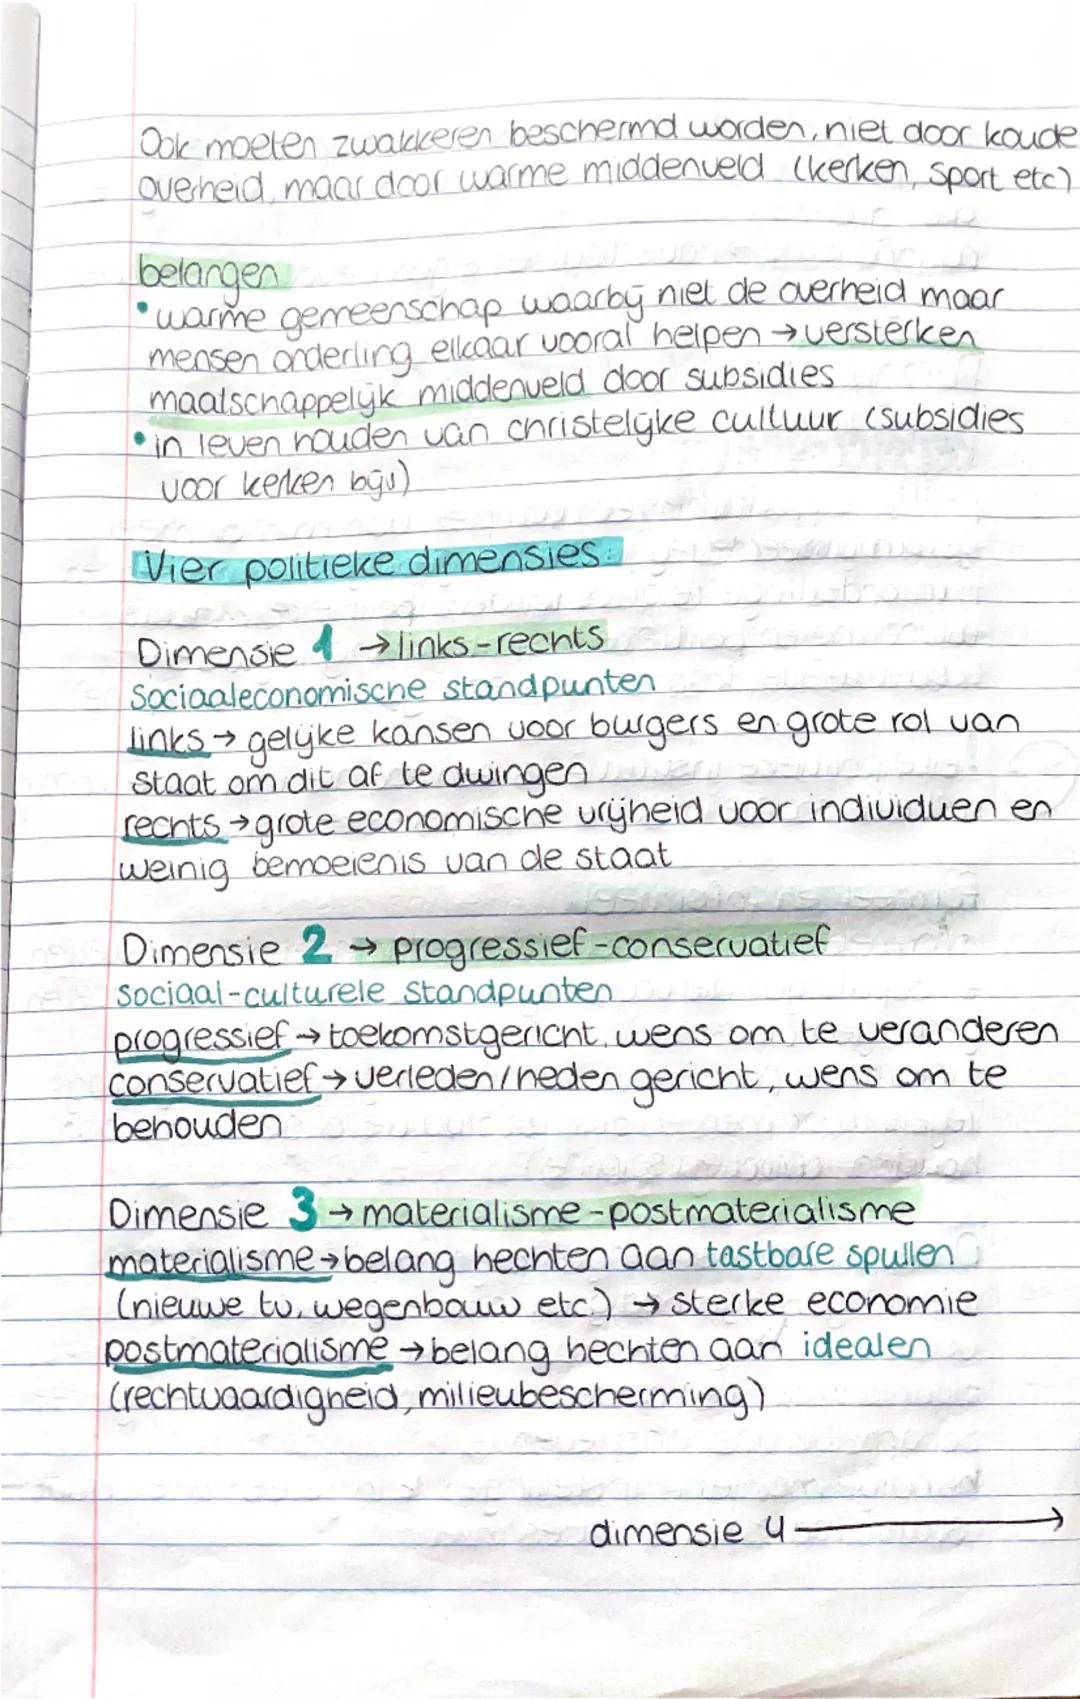 Ook moeten zwakkeren beschermd worden, niet door koude
overheid, maar door warme middenveld (kerken, sport etc)
belangen
• warme gemeenschap waarbij niet de overheid maar
mensen onderling elkaar vooral helpen → versterken
maatschappelijk middenveld door subsidies
• in leven houden van christelijke cultuur (subsidies
voor kerken bijv)
Vier politieke dimensies:
Dimensie 1 → links-rechts
Sociaaleconomische standpunten
links → gelijke kansen voor burgers en grote rol van
staat om dit af te dwingen
rechts → grote economische vrijheid voor individuen en
weinig bemoeienis van de staat
Dimensie 2 → progressief-conservatief
sociaal-culturele standpunten
progressief → toekomstgericht, wens om te veranderen
conservatief → verleden/heden gericht, wens om te
behouden
Dimensie 3 → materialisme-postmaterialisme
materialisme → belang hechten aan tastbare spullen
(nieuwe tv, wegenbouw etc.) → sterke economie
postmaterialisme → belang hechten aan idealen
(rechtvaardigheid, milieubescherming)
dimensie 4 →